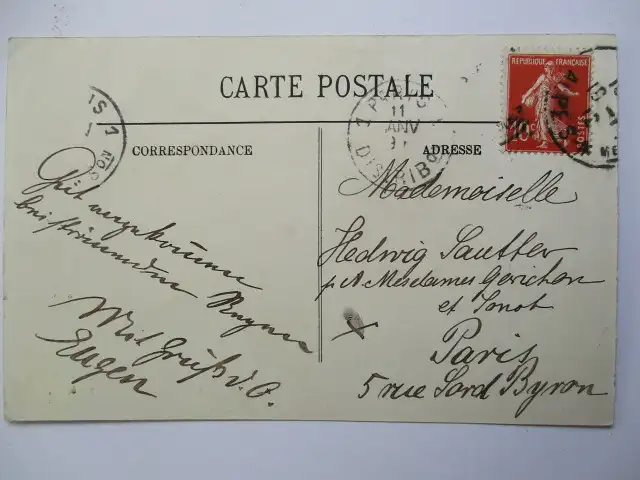 CARTE POSTALE
REPUBLIQUE FRANÇAISE
10
POSTES
PARIS
11
DISTRIB
CORRESPONDANCE
Gut angekommen
bei strömendem Regen
Mit Gruß d. O.
Eugen
ADRESSE
Mademoiselle
Hedwig Sautter
p. A. Mesdames Gerichon
et Sonot
Paris
5 rue Lord Byron